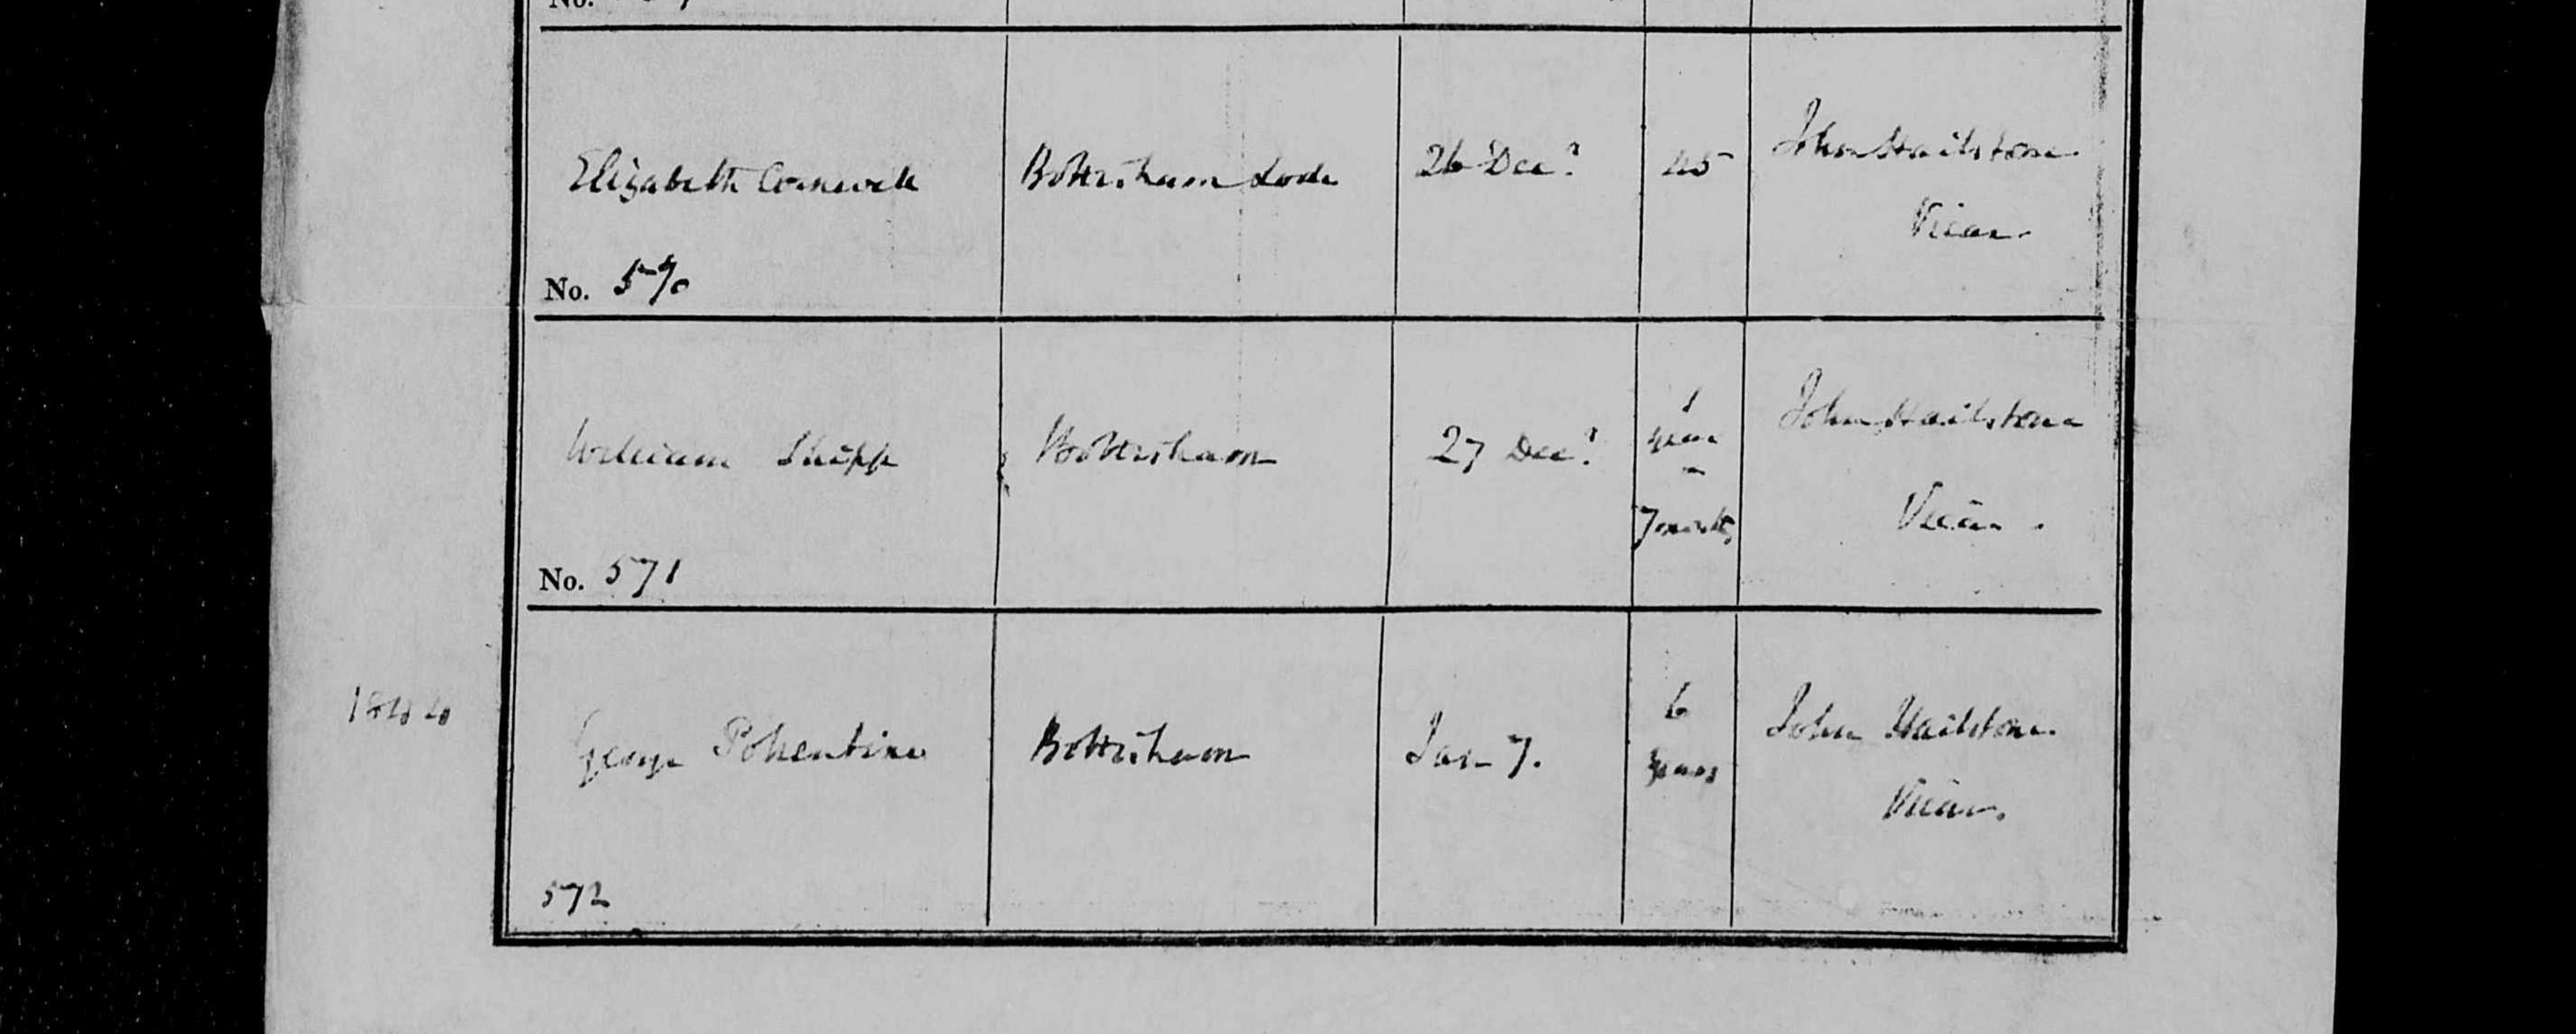 No.
Elizabeth Cornwell
Bottisham Lode
26 Decr
45
John Hailstone
Vicar.
No. 570
William Shipp
Bottisham
27 Decr
1
year
7 months
John Hailstone
Vicar.
No. 571
1840
George Pollentine
Bottisham
Jan 7.
6
years
John Hailstone.
Vicar.
572